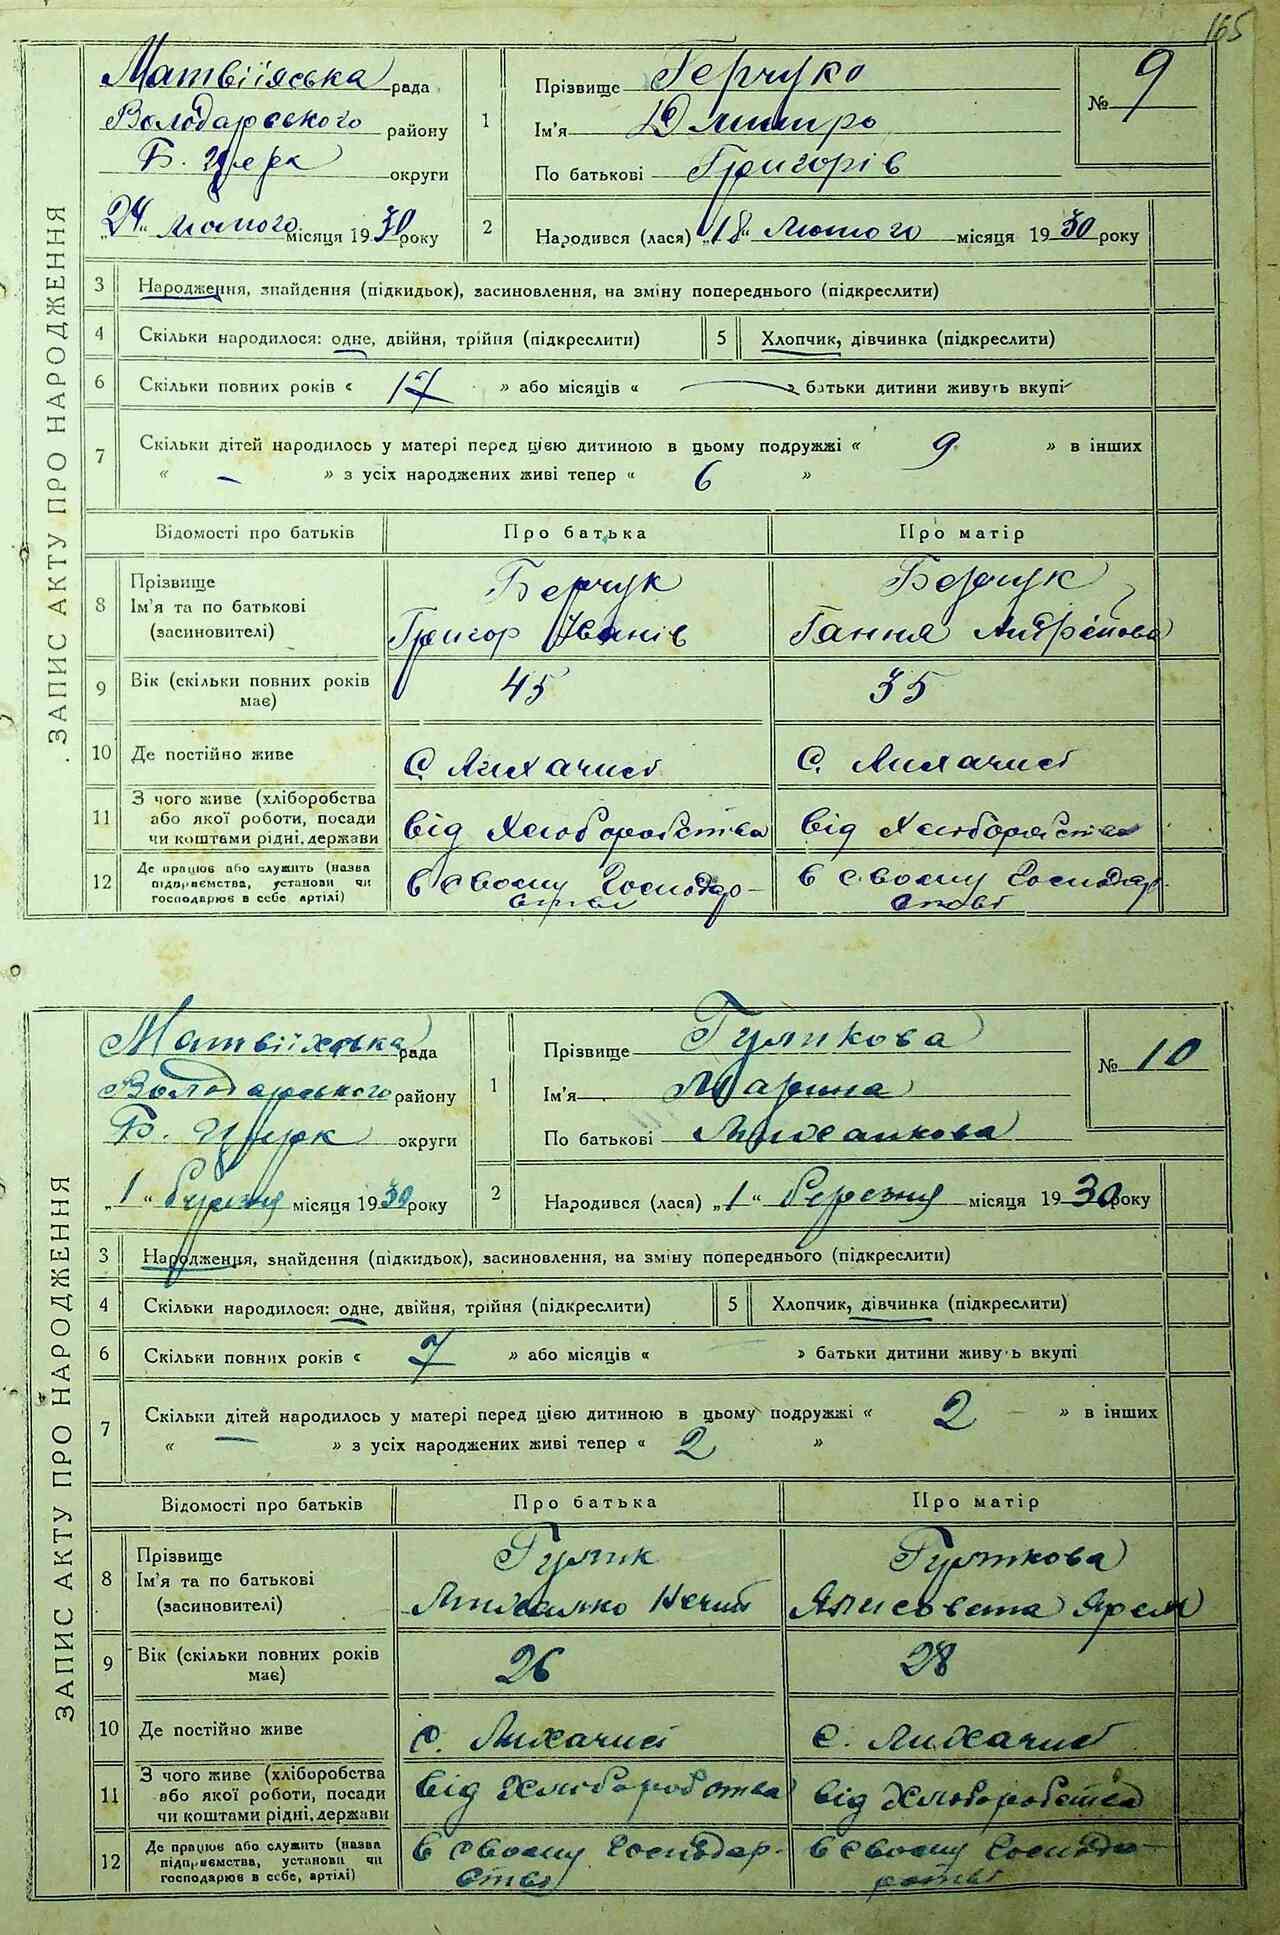 165
ЗАПИС АКТУ ПРО НАРОДЖЕННЯ
Матвіїяська рада
Володарського району
Б. Церк округи
„24“ лютого місяця 1930 року
1 Прізвище Герчуко
Ім'я Дмитро
По батькові Григорів
№ 9
2 Народився (лася) „18“ лютого місяця 1930 року
3 Народження, знайдення (підкидьок), засиновлення, на зміну попереднього (підкреслити)
4 Скільки народилося: одне, двійня, трійня (підкреслити) 5 Хлопчик, дівчинка (підкреслити)
6 Скільки повних років « 17 » або місяців « — » батьки дитини живуть вкупі
7 Скільки дітей народилось у матері перед цією дитиною в цьому подружжі « 9 » в інших
« – » з усіх народжених живі тепер « 6 »
Відомості про батьків Про батька Про матір
8 Прізвище
Ім'я та по батькові
(засиновителі)
Берчук
Григор Іванів
Берчук
Гання Андрійова
9 Вік (скільки повних років має) 45 35
10 Де постійно живе С. Лихачисі С. Лихачисі
11 З чого живе (хліборобства
або якої роботи, посади
чи коштами рідні, держави
від Хліборобства від Хліборобства
12 Де працює або служить (назва
підприємства, установи чи
господарює в себе, артілі)
в своєму Господар-
стві
в своєму Господар
стві
ЗАПИС АКТУ ПРО НАРОДЖЕННЯ
Матвіїхська рада
Володарського району
Б. Церк округи
„1“ березня місяця 1930 року
1 Прізвище Гуликова
Ім'я Марина
По батькові Михалкова
№ 10
2 Народився (лася) „1“ березня місяця 1930 року
3 Народження, знайдення (підкидьок), засиновлення, на зміну попереднього (підкреслити)
4 Скільки народилося: одне, двійня, трійня (підкреслити) 5 Хлопчик, дівчинка (підкреслити)
6 Скільки повних років « 7 » або місяців « » батьки дитини живуть вкупі
7 Скільки дітей народилось у матері перед цією дитиною в цьому подружжі « 2 – » в інших
« — » з усіх народжених живі тепер « 2 »
Відомості про батьків Про батька Про матір
8 Прізвище
Ім'я та по батькові
(засиновителі)
Гулик
Михалко
Гуликова
Ялисовета Ярем
9 Вік (скільки повних років має) 26 28
10 Де постійно живе с. Лихачисі с. Лихачисі
11 З чого живе (хліборобства
або якої роботи, посади
чи коштами рідні, держави
від Хліборобства від Хліборобства
12 Де працює або служить (назва
підприємства, установи чи
господарює в себе, артілі)
в своєму Господар-
стві
в своєму Господа-
рстві